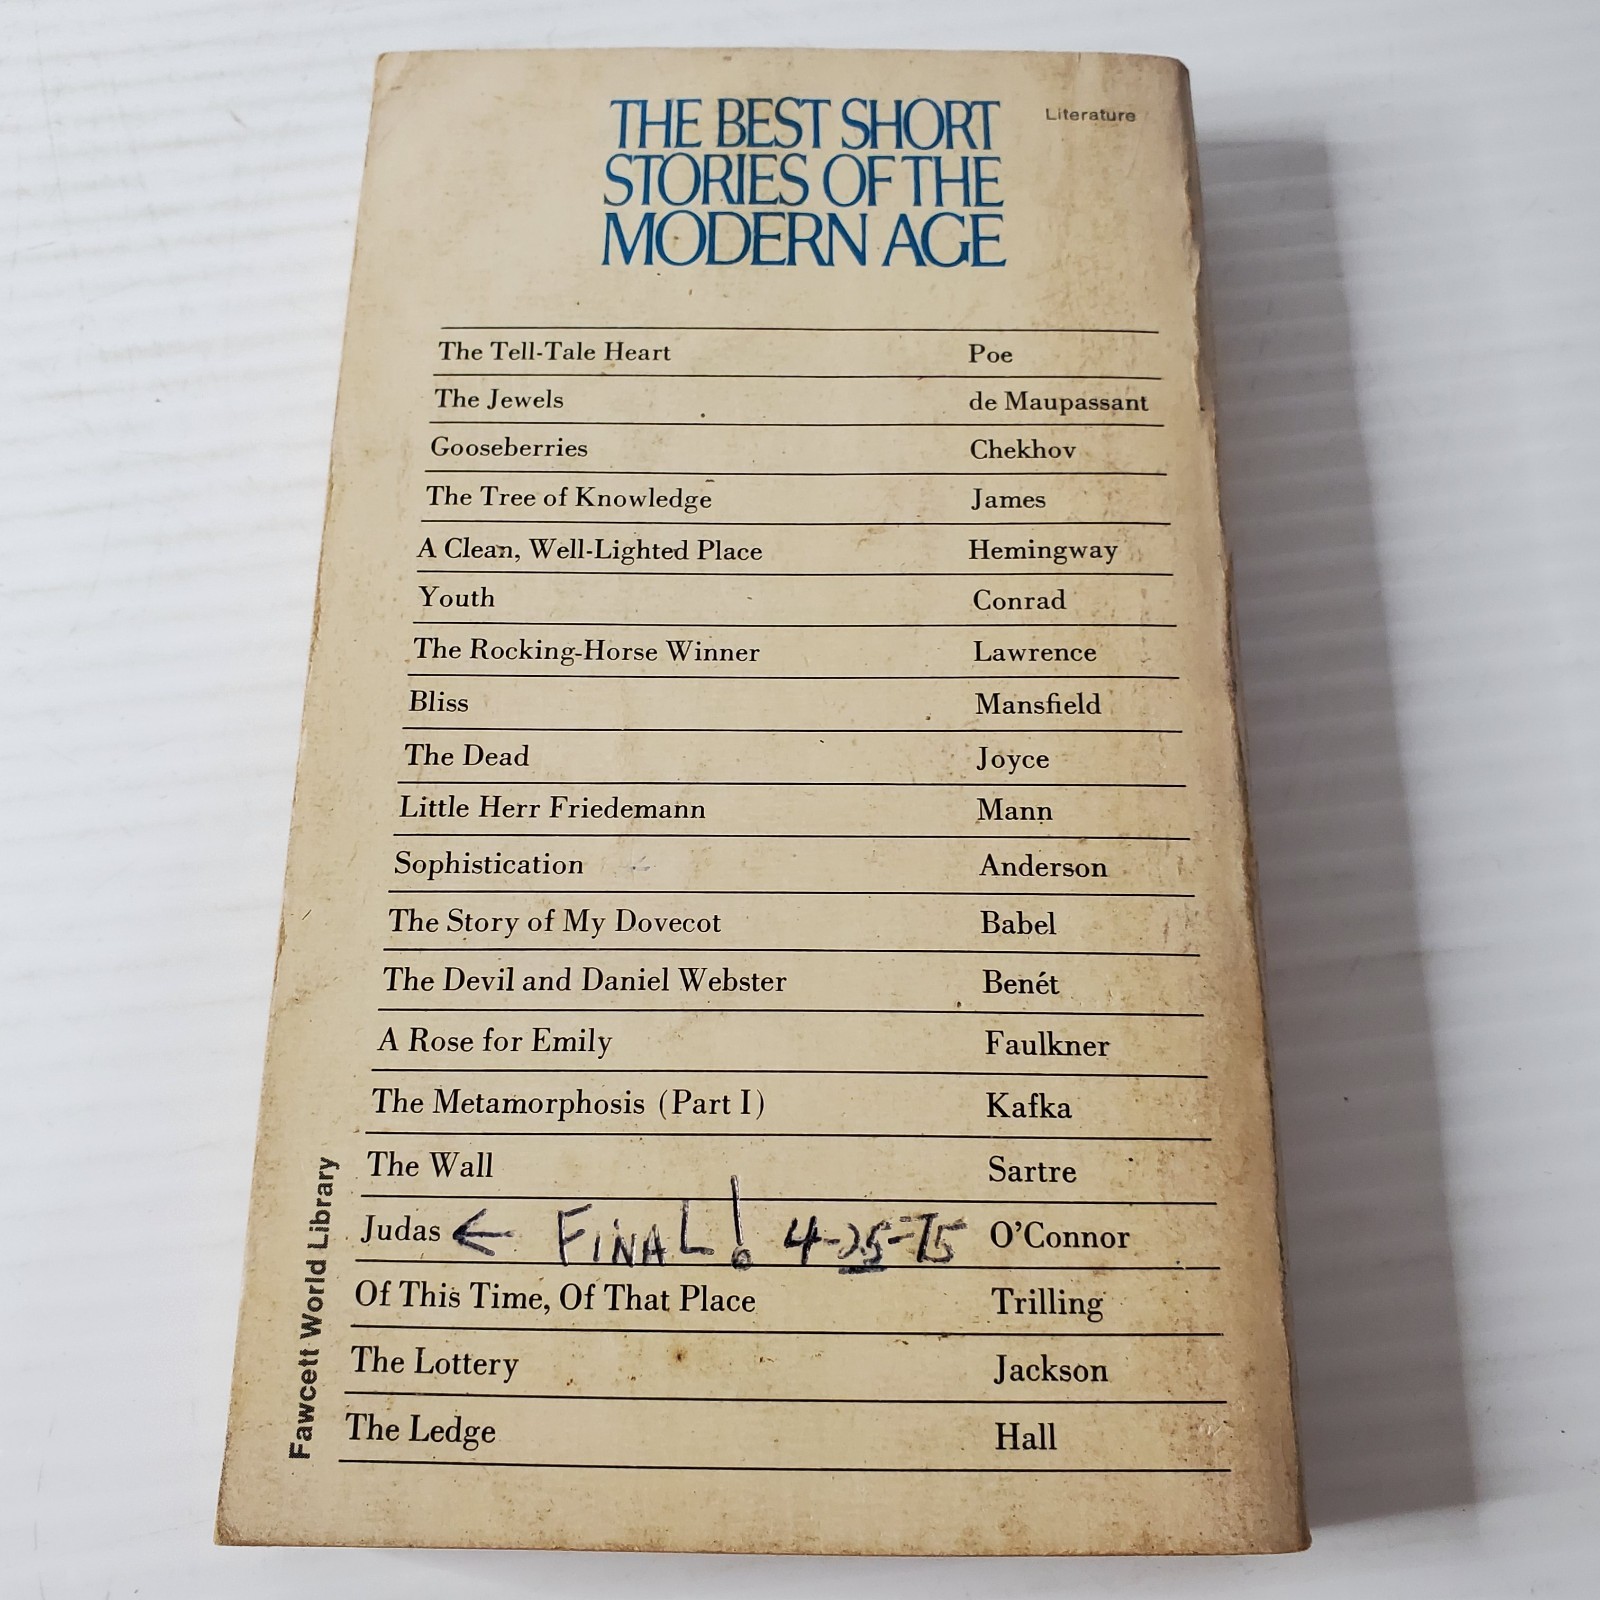 THE BEST SHORT
STORIES OF THE
MODERN AGE
Literature
The Tell-Tale Heart Poe
The Jewels de Maupassant
Gooseberries Chekhov
The Tree of Knowledge James
A Clean, Well-Lighted Place Hemingway
Youth Conrad
The Rocking-Horse Winner Lawrence
Bliss Mansfield
The Dead Joyce
Little Herr Friedemann Mann
Sophistication Anderson
The Story of My Dovecot Babel
The Devil and Daniel Webster Benét
A Rose for Emily Faulkner
The Metamorphosis (Part I) Kafka
The Wall Sartre
Judas ← FINAL! 4-25-75 O'Connor
Of This Time, Of That Place Trilling
The Lottery Jackson
The Ledge Hall
Fawcett World Library